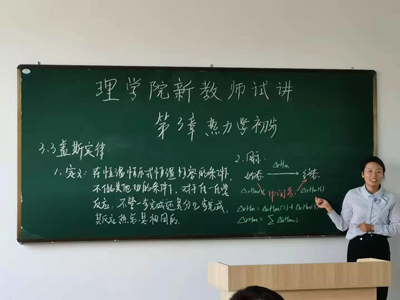 理学院新教师试讲
第3章 热力学初步
3.3 盖斯定律
1. 定义: 在恒温恒压或恒温恒容的条件下,
不做其他功的条件下, 对于任一化学
反应, 不管一步完成还是分几步完成,
其反应热总是相同的.
2. 图示:
始态 ΔrHm 终态
中间态
ΔrHm = ΔrHm(1) + ΔrHm
ΔrHm = ∑ΔrHm